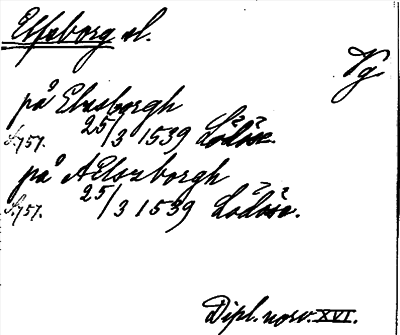 Elfsborg sl.
Vg.
på Elssborgh
S. 757. 25/3 1539 Lödöse.
på AElszborgh
S. 757. 25/3 1539 Lödöse.
Dipl. norv. XVI.